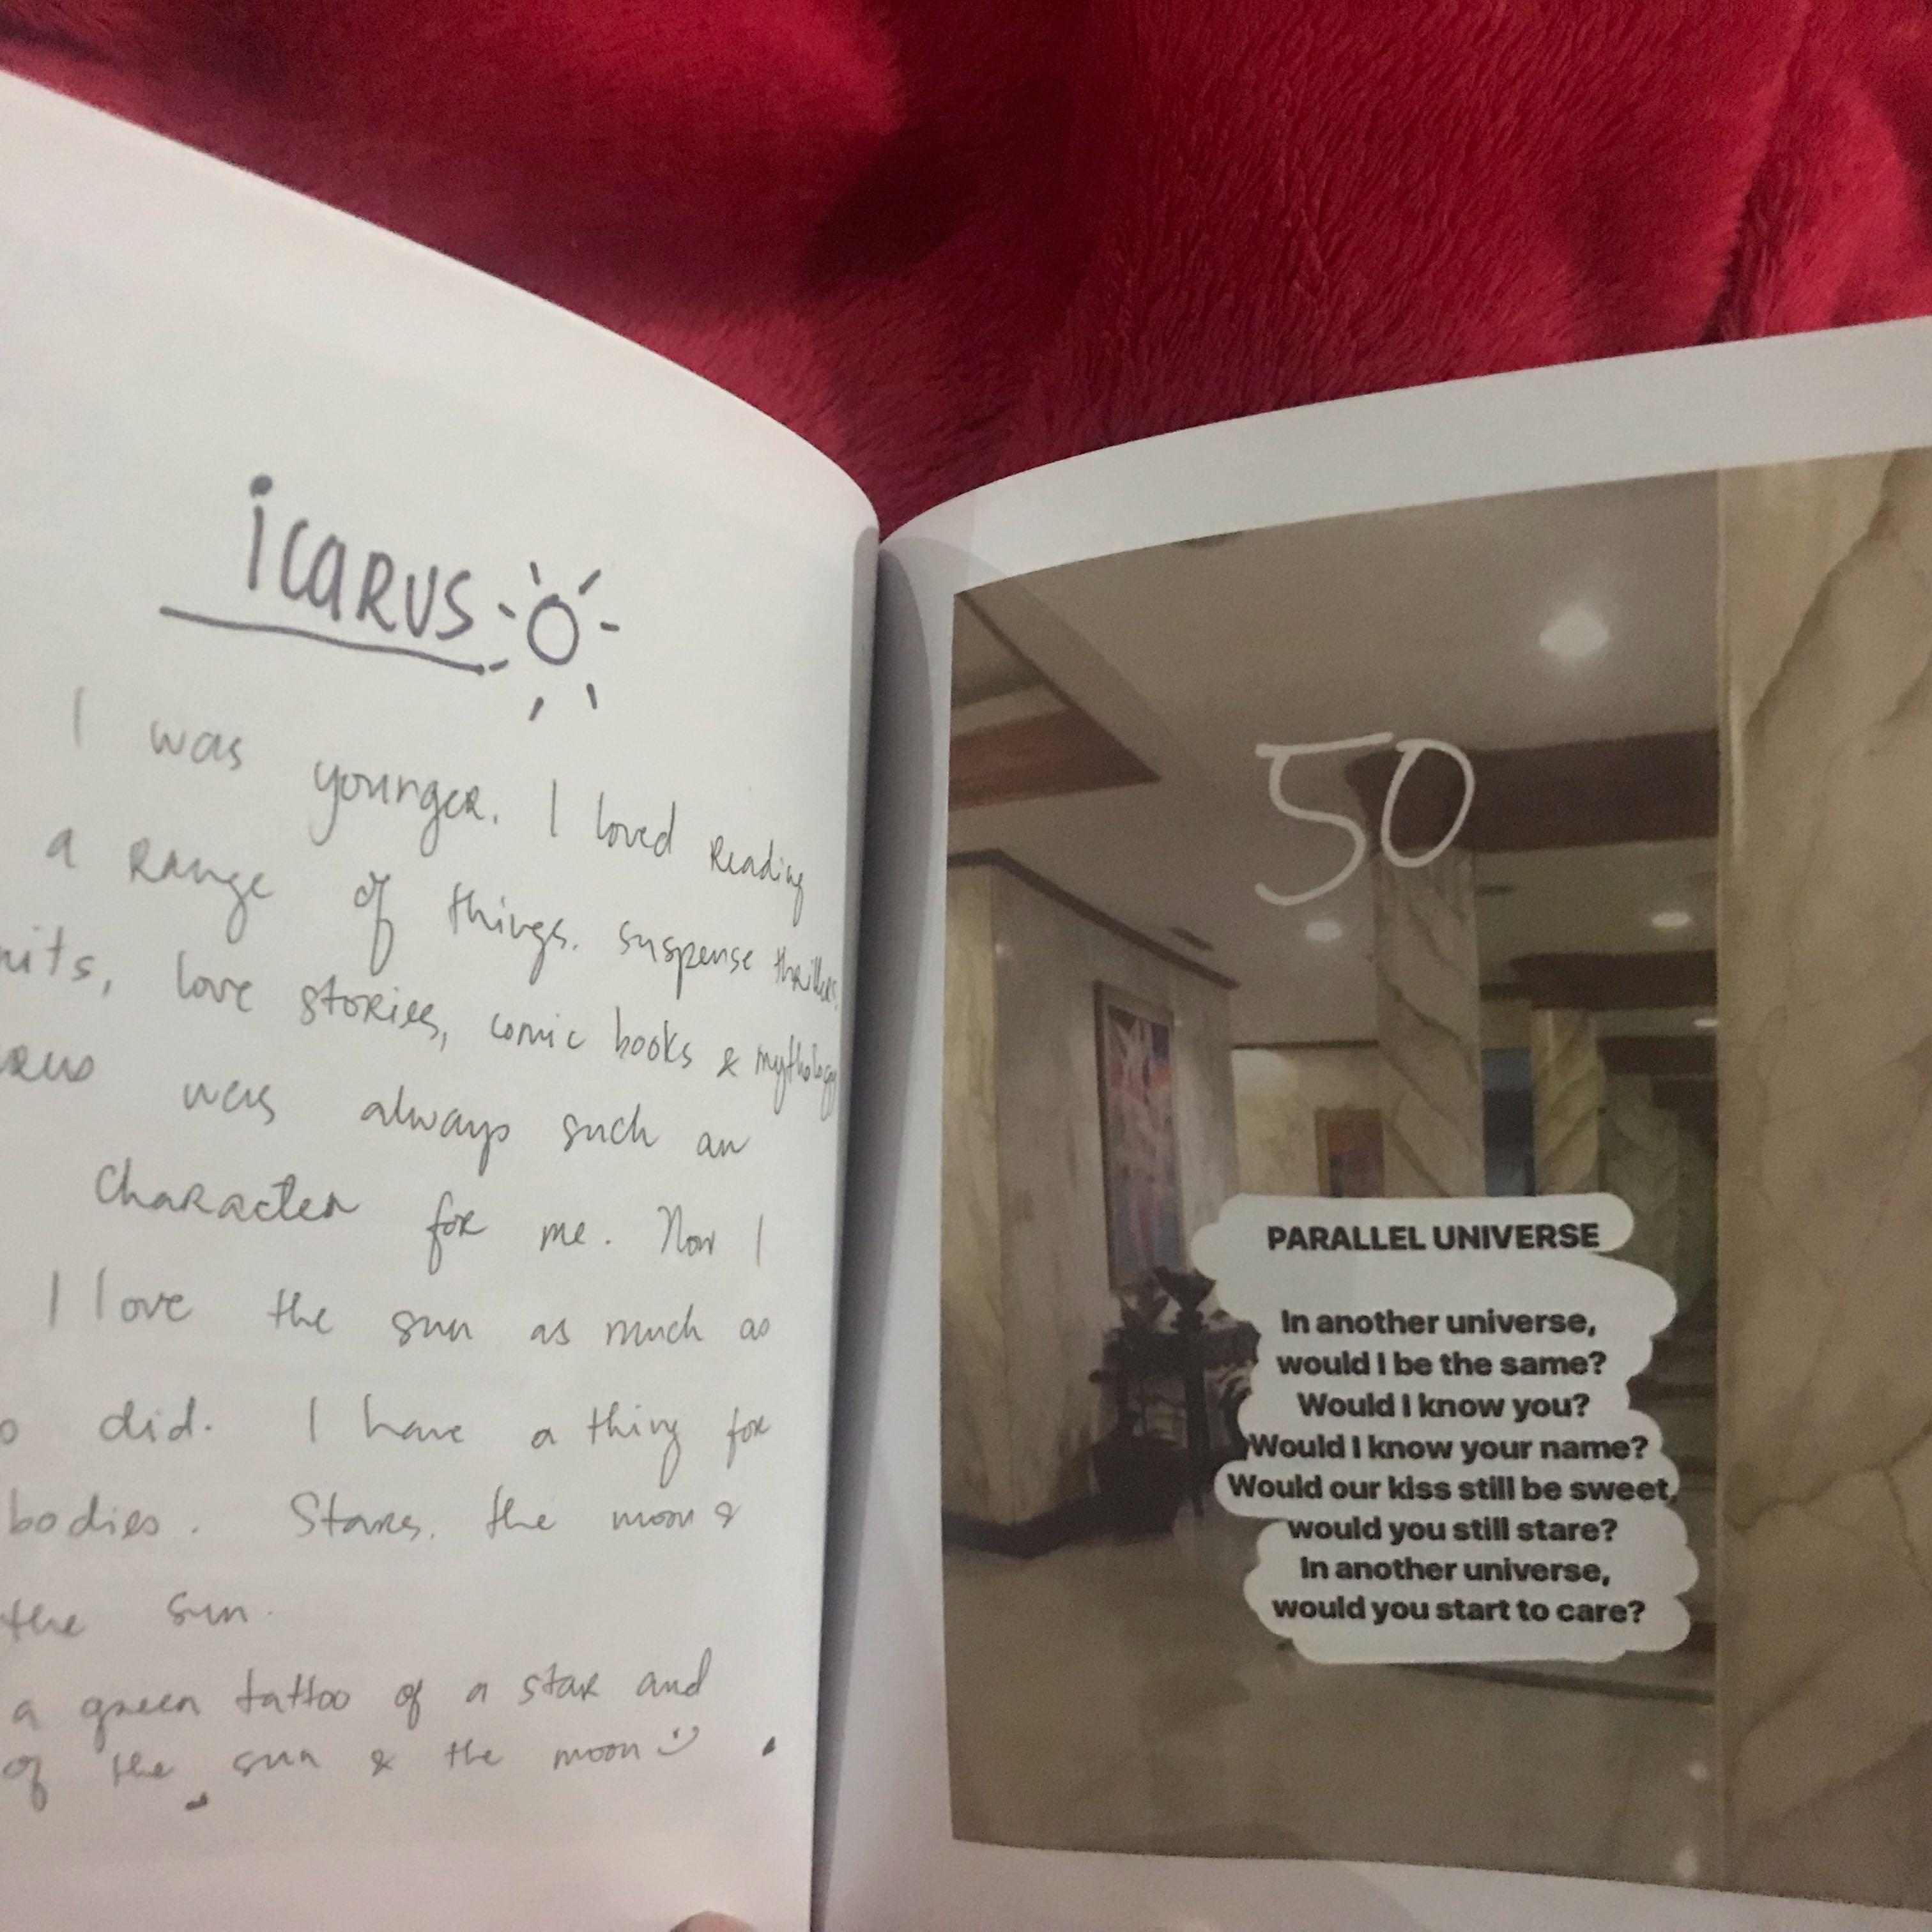 iCARUS
I was younger. I loved Reading
a Range of things. suspense thrillers,
love stories, comic books & mythology
was always such an
character for me. Now I
I love the sun as much as
did. I have a thing for
bodies. Stars, the moon &
the sun.
a green tattoo of a star and
of the sun & the moon
50
PARALLEL UNIVERSE
In another universe,
would I be the same?
Would I know you?
Would I know your name?
Would our kiss still be sweet,
would you still stare?
In another universe,
would you start to care?